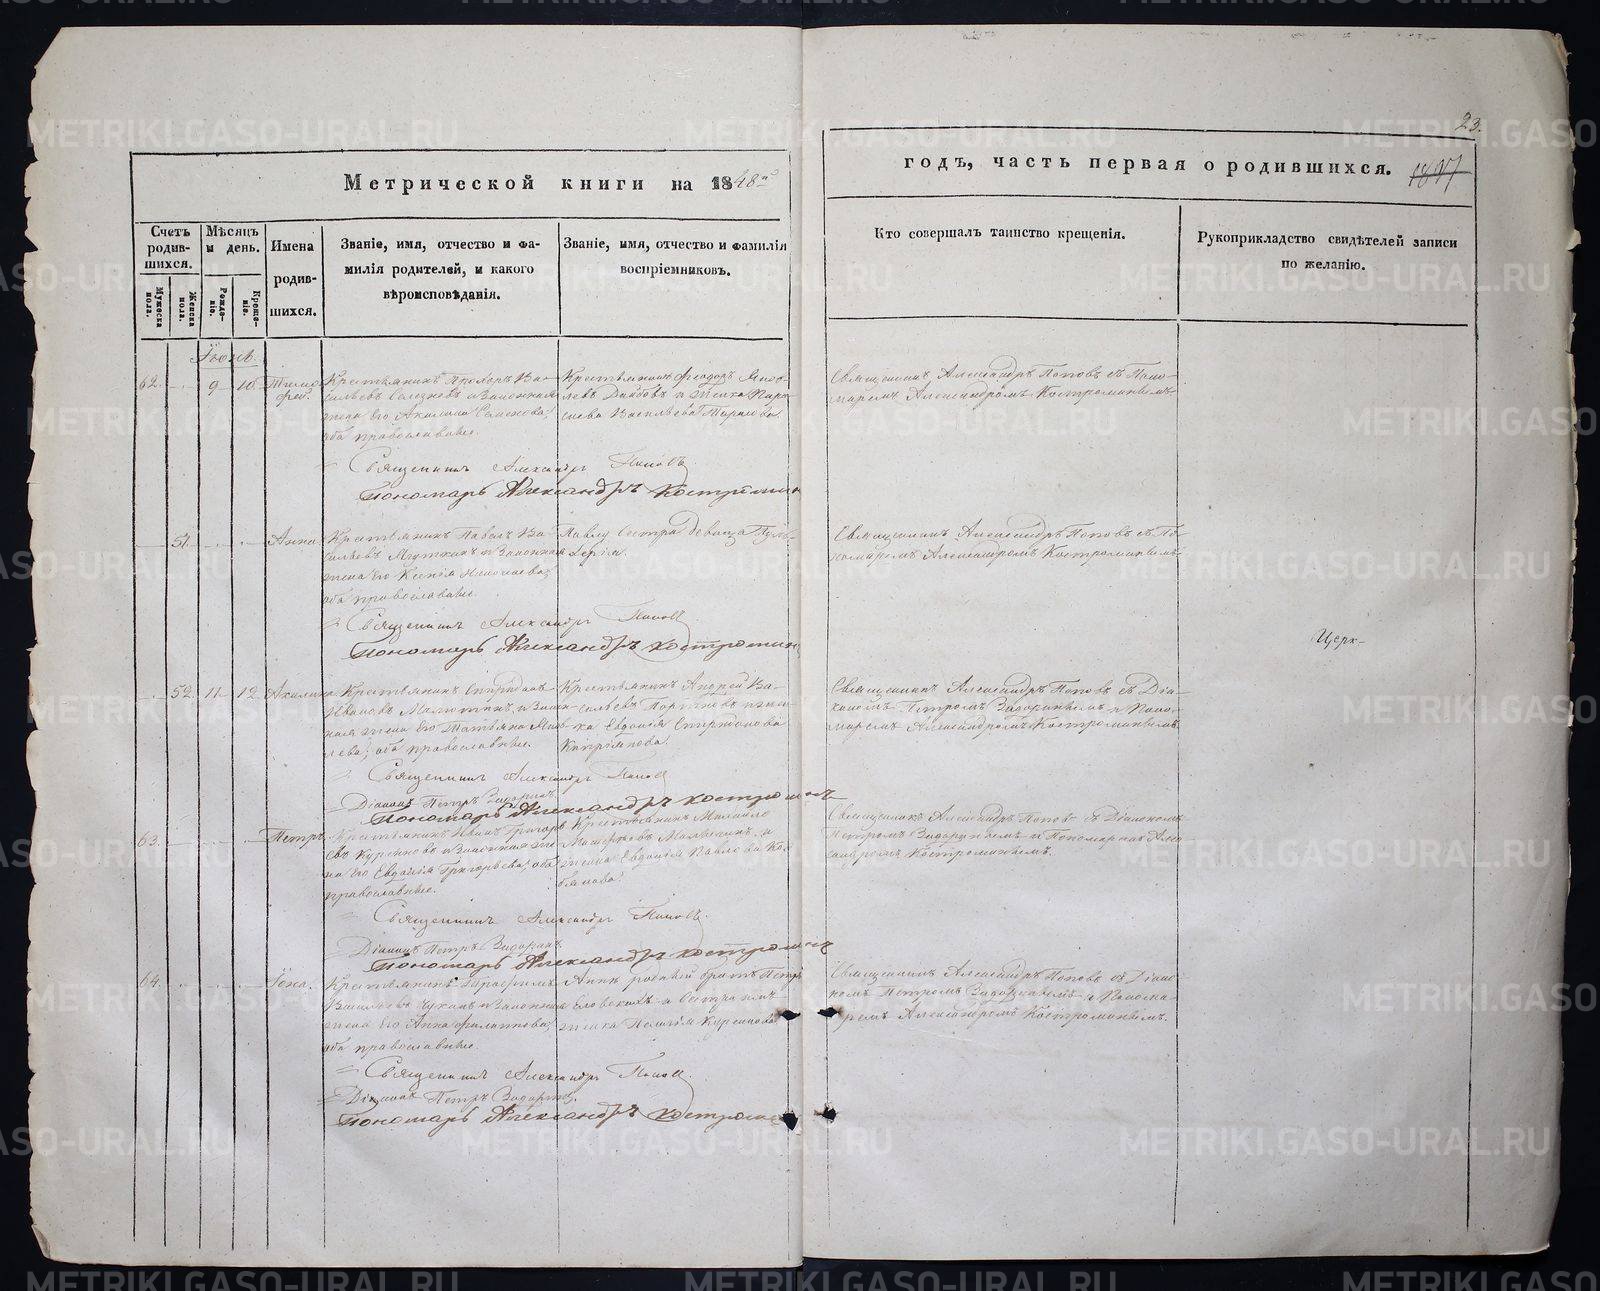 23.
Метрической книги на 1848й
годъ, часть первая о родившихся. 1847
Счетъ родив-шихся.
Мужеска пола.
Женска пола.
Мѣсяцъ и день.
Рожде-нія.
Креще-нія.
Имена родив-шихся.
Званіе, имя, отчество и фа-
милія родителей, и какого
вѣроисповѣданія.
Званіе, имя, отчество и фамилія
воспріемниковъ.
Кто совершалъ таинство крещенія.
Рукоприкладство свидѣтелей записи
по желанію.
Іюнь.
62. 9 10 Тимо-фей.
Крестьянинъ Прохоръ Ва-
сильевъ Селезневъ и законная
жена его Акилина Семенова;
оба православные.
Крестьянинъ Феодоръ Яков-
левъ Давыдовъ и
Васильева
Священникъ Александръ Поповъ съ Поно-
маремъ Александромъ Костроминымъ
Священникъ Александръ Поповъ
Пономарь Александръ Костроминъ
51. Анна.
Крестьянинъ Павелъ Ва-
сильевъ и законная
жена его Ксенія Николаева;
оба православные.
Павлу сестра девица Пуль-
херія.
Священникъ Александръ Поповъ съ По-
номаремъ Александромъ Костроминымъ
Священникъ Александръ Поповъ
Пономарь Александръ Костроминъ
Церк-
52. 11 12 Акилина
Крестьянинъ Спиридонъ
Ивановъ Малютинъ и закон-
ная жена его Татьяна Яков-
лева; оба православные.
Крестьянинъ Андрей Ва-
сильевъ
Евдокія
Киприянова.
Священникъ Александръ Поповъ съ Діа-
кономъ Петромъ Задоринымъ и Поно-
маремъ Александромъ Костроминымъ
Священникъ Александръ Поповъ
Діаконъ Петръ Задоринъ
Пономарь Александръ Костроминъ
63. Петръ.
Крестьянинъ Иванъ Григорь-
евъ и законная же-
на его Евдокія Григорьева; оба
православные.
Крестьянинъ Михайло
жена Евдокія Павлова
Священникъ Александръ Поповъ съ Діакономъ
Петромъ Задоринымъ и Пономаремъ Алек-
сандромъ Костроминымъ.
Священникъ Александръ Поповъ.
Діаконъ Петръ Задоринъ.
Пономарь Александръ Костроминъ
64. Іона.
Крестьянинъ Герасимъ
Васильевъ и законная
жена его Анна Филиппова;
оба православные.
Анны родный братъ Петръ
Пелагія
Священникъ Александръ Поповъ съ Діако-
номъ Петромъ Задоринымъ и Понома-
ремъ Александромъ Костроминымъ.
Священникъ Александръ Поповъ.
Діаконъ Петръ Задоринъ.
Пономарь Александръ Костроминъ
METRIKI.GASO-URAL.RU